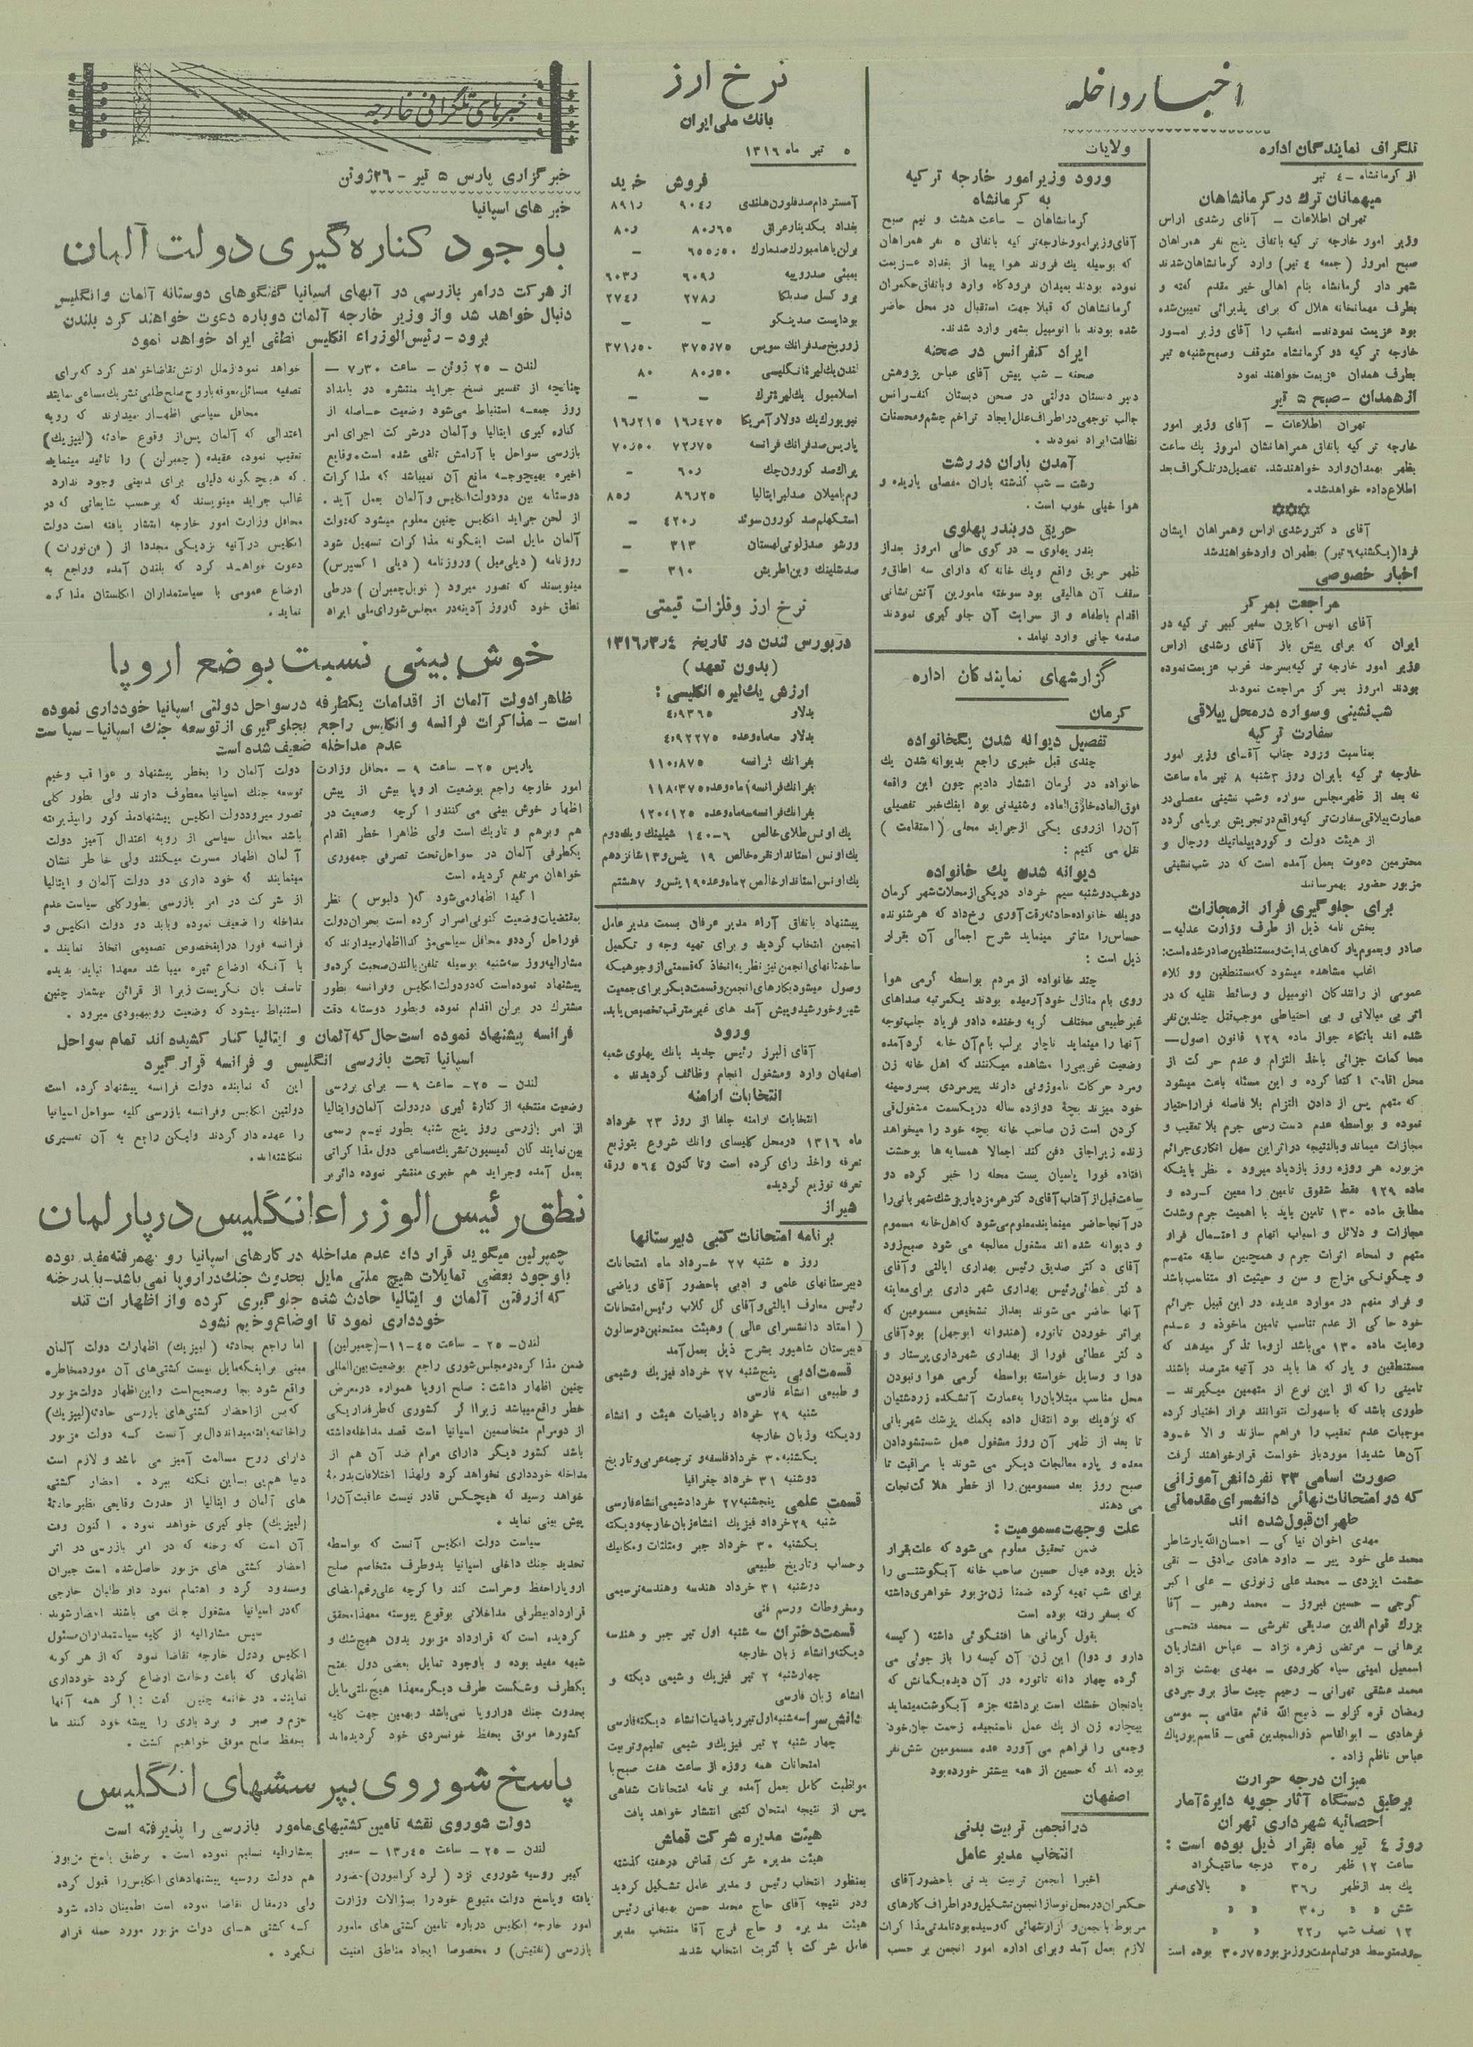 اخبار داخله
تلگراف نمایندگان اداره
از کرمانشاه - ٤ تیر
میهمانان ترك در کرمانشاهان
تهران اطلاعات - آقای رشدی اراس
وزیر امور خارجه ترکیه باتفاق پنج نفر همراهان
صبح امروز (جمعه ٤ تیر) وارد کرمانشاهان شدند
شهردار کرمانشاه بنام اهالی خیر مقدم گفته و
بطرف مهمانخانه هلال که برای پذیرائی تعیین شده
بود عزیمت نمودند. امشب را آقای وزیر امور
خارجه ترکیه در کرمانشاه متوقف وصبح شنبه ٥ تیر
بطرف همدان عزیمت خواهند نمود
از همدان - صبح ٥ تیر
تهران اطلاعات - آقای وزیر امور
خارجه ترکیه باتفاق همراهانشان امروز یك ساعت
بظهر بهمدان وارد خواهند شد. تفصیل در تلگراف بعد
اطلاع داده خواهد شد.
آقای دکتر رشدی اراس وهمراهان ایشان
فردا (یکشنبه ٦ تیر) بطهران وارد خواهند شد
اخبار خصوصی
مراجعت بمرکز
آقای انیس آکایژن سفیر کبیر ترکیه در
ایران که برای پیش باز آقای رشدی اراس
وزیر امور خارجه ترکیه بسرحد غرب عزیمت نموده
بودند امروز بمرکز مراجعت نمودند
شب نشینی وسواره در محل ییلاقی
سفارت ترکیه
بمناسبت ورود جناب آقای وزیر امور
خارجه ترکیه بایران روز ٣شنبه ٨ تیر ماه ساعت
نه بعد از ظهر مجلس سواره وشب نشینی مفصلی در
عمارت ییلاقی سفارت ترکیه واقع در تجریش برپا می گردد
از هیئت دولت و کوردیپلماتیك ورجال و
محترمین دعوت بعمل آمده است که در شب نشینی
مزبور حضور بهمرسانند
برای جلوگیری فرار از مجازات
بخش نامه ذیل از طرف وزارت عدلیه -
صادر وبعموم پارکه های بدایت ومستنطقین صادر شده است:
اغلب مشاهده میشود که مستنطقین و وکلاء
عمومی از رانندگان اتومبیل و وسائط نقلیه که در
اثر بی مبالاتی و بی احتیاطی موجب قتل چندین نفر
شده اند باتکاء جواز ماده ١٢٩ قانون اصول -
محاکمات جزائی باخذ التزام و عدم حرکت از
محل اقامت اکتفا کرده و این مسئله باعث میشود
که متهم پس از دادن التزام بلا فاصله فرار اختیار
نموده و بواسطه عدم دست رسی جرم بلا تعقیب و
مجازات میماند وبالنتیجه در اثر این سهل انگاری جرائم
مزبوره هر روزه روز بازدیاد میرود. نظر باینکه
ماده ١٢٩ فقط شقوق تامین را معین کرده و
مطابق ماده ١٣٠ تامین باید با اهمیت جرم وشدت
مجازات و دلائل و اسباب اتهام و احتمال فرار
متهم و امحاء اثرات جرم و همچنین سابقه متهم
و چگونگی مزاج و سن و حیثیت او متناسب باشد
و فرار متهم در موارد عدیده در این قبیل جرائم
خود حاکی از عدم تناسب تامین ماخوذه و عدم
رعایت ماده ١٣٠ می باشد لزوما تذکر میدهد که
مستنطقین و پارکه ها باید در آتیه مترصد باشند
تامینی را که از این نوع از متهمین میگیرند -
طوری باشد که باسهولت نتوانند فرار اختیار کرده
موجبات عدم تعقیب را فراهم سازند و الا خود
آن ها شدیدا مورد باز خواست قرار خواهند گرفت
صورت اسامی ٢٣ نفر دانش آموزانی
که در امتحانات نهائی دانشسرای مقدماتی
طهران قبول شده اند
مهدی اخوان نیا کی - احسان الله یارشاطر
محمد علی خود پیر - داود هادی صادق - نقی
حشمت ایزدی - محمد علی زنوزی - علی اکبر
گرجی - حسین فیروز - محمد رهبر - آقا
بزرك قوام الدین صدیقی تفرشی - محمد فتحی
برهانی - مرتضی زهره نژاد - عباس افشاریان
اسمعیل امینی سیاه کارودی - مهدی بهشت نژاد
محمد عشقی تهرانی - رحیم چیت ساز بروجردی
رمضان قره گزلو - ذبیح الله قائم مقامی - موسی
فرهادی - ابوالقاسم ذوالمجدین قمی - قاسم پور پاك
عباس ناظم زاده.
میزان درجه حرارت
برطبق دستگاه آثار جویه دایرة آمار
احصائیه شهرداری تهران
روز ٤ تیر ماه بقرار ذیل بوده است:
ساعت ١٢ ظهر ٣٥٫ درجه سانتیگراد
یك بعد از ظهر ٣٦٫ « بالای صفر
شش « « ٣٠٫ « «
١٢ نصف شب ٢٢٫ « «
حد متوسط در تمام مدت روز مزبور ٣٠٫٧٥ بوده است
ولایات
ورود وزیر امور خارجه ترکیه
به کرمانشاه
کرمانشاهان - ساعت هشت و نیم صبح
آقای وزیر امور خارجه ترکیه باتفاق ٥ نفر همراهان
که بوسیله یك فروند هوا پیما از بغداد عزیمت
نموده بودند بمیدان فرودگاه وارد وباتفاق حکمران
کرمانشاهان که قبلا جهت استقبال در محل حاضر
شده بودند با اتومبیل بشهر وارد شدند.
ایراد کنفرانس در صحنه
صحنه - شب پیش آقای عباس پژوهش
دبیر دبستان دولتی در صحن دبستان کنفرانس
جالب توجهی در اطراف علل ایجاد تراخم چشم ومحسنات
نظافت ایراد نمودند.
آمدن باران در رشت
رشت - شب گذشته باران مفصلی باریده و
هوا خیلی خوب است.
حریق در بندر پهلوی
بندر پهلوی - در کوی حالی امروز بعد از
ظهر حریق واقع ویك خانه که دارای سه اطاق و
سقف آن هالیقی بود سوخته مامورین آتش نشانی
اقدام باطفاء و از سرایت آن جلوگیری نمودند
صدمه جانی وارد نیامد.
گزارشهای نمایندگان اداره
کرمان
تفصیل دیوانه شدن یکخانواده
چندی قبل خبری راجع بدیوانه شدن یك
خانواده در کرمان انتشار دادیم چون این واقعه
فوق العاده خارق العاده وشنیدنی بود اینك خبر تفصیلی
آن را از روی یکی از جراید محلی (استقامت)
نقل می کنیم:
دیوانه شدن یك خانواده
در شب دوشنبه سیم خرداد در یکی از محلات شهر کرمان
در یك خانواده حادثه رقت آوری رخ داد که هر شنونده
حساس را متاثر مینماید شرح اجمالی آن بقرار
ذیل است:
چند خانواده از مردم بواسطه گرمی هوا
روی بام منازل خود آرمیده بودند یکمرتبه صداهای
غیر طبیعی مختلف گریه وخنده دادو فریاد جلب توجه
آنها را مینماید ناچار برلب بام آن خانه گرد آمده
وضعیت غریبی را مشاهده میکنند که اهل خانه زن
ومرد حرکات ناموزونی دارند پیرمردی بسر وسینه
خود میزند بچهٔ دوازده ساله در یکسمت مشغول قی
کردن است زن صاحب خانه بچه خود را میخواهد
زنده زیر اجاق دفن کند اجمالا همسایه ها بوحشت
افتاده فورا پاسبان پست محله را خبر کرده دو
ساعت قبل از آفتاب آقای دکتر هرمزدیار پزشك شهربانی را
در آنجا حاضر مینمایند معلوم می شود که اهل خانه مسموم
و دیوانه شده اند مشغول معالجه می شود صبح زود
آقای دکتر صدیق رئیس بهداری ایالتی وآقای
دکتر عطائی رئیس بهداری شهرداری برای معاینه
آنها حاضر می شوند بعد از تشخیص مسمومین که
براثر خوردن تاتوره (هندوانه ابوجهل) بود آقای
دکتر عطائی فورا از بهداری شهرداری پرستار و
دوا و وسایل خواسته بواسطه گرمی هوا ونبودن
محل مناسب مبتلایان را به عمارت آتشکده زردشتیان
که نزدیك بود انتقال داده بکمك پزشك شهربانی
تا بعد از ظهر آن روز مشغول عمل شستشو دادن
معده و پاره معالجات دیگر می شوند با مراقبت تا
صبح روز بعد مسمومین را از خطر هلاکت نجات
می دهند.
علت و جهت مسمومیت:
ضمن تحقیق معلوم می شود که علت بقرار
ذیل بوده عیال حسین صاحب خانه آبگوشتی را
برای شب تهیه کرده ضمنا زن مزبور خواهری داشته
که بسفر رفته بوده است
بقول کرمانی ها افتفگوئی داشته (کیسه
دارو و دوا) این زن آن کیسه را باز جوئی می
کرده چهار دانه تاتوره در آن دیده بگمانش که
بادنجان خشك است برداشته جزء آبگوشت مینماید
بیچاره زن از یك عمل ناسنجیده زحمت جان خود
وجمعی را فراهم می آورد عده مسمومین شش نفر
بوده اند که حسین از همه بیشتر خورده بود
اصفهان
در انجمن تربیت بدنی
انتخاب مدیر عامل
اخیرا انجمن تربیت بدنی باحضور آقای
حکمران در محل نوساز انجمن تشکیل و در اطراف کارهای
مربوط بانجمن و گزارشهائی که رسیده بود تامدتی مذاکرات
لازم بعمل آمد وبرای اداره امور انجمن بر حسب
نرخ ارز
بانك ملی ایران
٥ تیر ماه ١٣١٦
فروش خرید
آمستردام صد فلورن هلندی ٩٠٤٫ ٨٩١٫
بغداد یکدینار عراق ٨٠٫٦٥ ٨٠٫
برلن باهامبورك صد مارك ٦٥٥٫٥٠ -
بمبئی صد روپیه ٦٠٩٫ ٦٠٣٫
بروکسل صد بلگا ٢٧٨٫ ٢٧٤٫
بوداپست صد پنگو - -
زوریخ صد فرانك سویس ٣٧٥٫٧٥ ٣٧١٫٥٠
لندن یك لیره انگلیسی ٨٠٫٥٠ ٨٠
اسلامبول یك لیره ترك - -
نیویورك یك دولار آمریکا ١٦٫٤٧٥ ١٦٫٢١٥
پاریس صد فرانك فرانسه ٧٢٫٧٥ ٧٠٫٥٠
پراك صد کورون چك ٦٠٫ -
رم یا میلان صد لیر ایتالیا ٨٦٫٢٥ ٨٥٫
استکهلم صد کورون سوئد ٤٢٠٫ -
ورشو صد زلوتی لهستان ٣١٣ -
صد شلینك وین اطریش ٣١٠ -
نرخ ارز وفلزات قیمتی
در بورس لندن در تاریخ ١٣١٦٫٣٫٤
(بدون تعهد)
ارزش یك لیره انگلیسی:
بدلار ٤٫٩٣٦٥
بدلار سه ماه وعده ٤٫٩٢٢٧٥
بفرانك فرانسه ١١٠٫٨٧٥
بفرانك فرانسه ١ ماه وعده ١١٨٫٣٧٥
بفرانك فرانسه سه ماه وعده ١٢٠٫١٢٥
یك اونس طلای خالص ٦-١٤٠ شیلینك ویك دوم
یك اونس استاندار نقره خالص ١٩ پنس و ١٣ شانزدهم
یك اونس استاندار خالص ٢ ماه وعده ١٩ پنس و ٧ هشتم
پیشنهاد باتفاق آراء مدیر عرفان بسمت مدیر عامل
انجمن انتخاب گردید و برای تهیه وجه و تکمیل
ساختمانهای انجمن نیز نظریه اتخاذ که قسمتی از وجوهیکه
وصول میشود بکارهای انجمن و قسمت دیگر برای جمعیت
شیر وخورشید و پیش آمد های غیر مترقب تخصیص یابد.
ورود
آقای البرز رئیس جدید بانك پهلوی شعبه
اصفهان وارد ومشغول انجام وظائف گردیدند.
انتخابات ارامنه
انتخابات ارامنه جلفا از روز ٢٣ خرداد
ماه ١٣١٦ در محل کلیسای وانك شروع بتوزیع
تعرفه واخذ رای کرده است وتا کنون ٥٦٤ ورقه
تعرفه توزیع گردیده
شیراز
برنامه امتحانات کتبی دبیرستانها
روز ٥ شنبه ٢٧ خرداد ماه امتحانات
دبیرستانهای علمی و ادبی باحضور آقای ریاضی
رئیس معارف ایالتی وآقای گل گلاب رئیس امتحانات
(استاد دانشسرای عالی) وهیئت ممتحنین در سالون
دبیرستان شاهپور بشرح ذیل بعمل آمد
قسمت ادبی پنجشنبه ٢٧ خرداد فیزیك وشیمی
و طبیعی انشاء فارسی
شنبه ٢٩ خرداد ریاضیات هیئت و انشاء
ودیکته وزبان خارجه
یکشنبه ٣٠ خرداد فلسفه و ترجمه عربی وتاریخ
دوشنبه ٣١ خرداد جغرافیا
قسمت علمی پنجشنبه ٢٧ خرداد شیمی انشاء فارسی
شنبه ٢٩ خرداد فیزیك انشاء زبان خارجه و دیکته
یکشنبه ٣٠ خرداد جبر ومثلثات ومکانیك
وحساب وتاریخ طبیعی
دوشنبه ٣١ خرداد هندسه وهندسه ترسیمی
ومخروطات ورسم فنی
قسمت دختران سه شنبه اول تیر جبر و هندسه
دیکته وانشاء زبان خارجه
چهارشنبه ٢ تیر فیزیك و شیمی دیکته و
انشاء زبان فارسی
دانش سرا سه شنبه اول تیر ریاضیات انشاء دیکته فارسی
چهار شنبه ٢ تیر فیزیك و شیمی تعلیم وتربیت
امتحانات همه روزه از ساعت هفت صبح با
مواظبت کامل بعمل آمده برنامه امتحانات شفاهی
پس از نتیجه امتحان کتبی انتشار خواهد یافت
هیئت مدیره شرکت قماش
هیئت مدیره شرکت قماش در هفته گذشته
بمنظور انتخاب رئیس و مدیر عامل تشکیل گردید
ودر نتیجه آقای حاج محمد حسن بهبهانی رئیس
هیئت مدیره و حاج فرج آقا منتخب مدیر
عامل شرکت با کثریت انتخاب شدند
خبرهای تلگرافی خارجه
خبر گزاری پارس ٥ تیر - ٢٦ ژوئن
خبر های اسپانیا
باوجود کناره گیری دولت آلمان
از شرکت در امر بازرسی در آبهای اسپانیا گفتگوهای دوستانه آلمان وانگلیس
دنبال خواهد شد واز وزیر خارجه آلمان دوباره دعوت خواهند کرد بلندن
برود - رئیس الوزراء انگلیس نطقی ایراد خواهد نمود
لندن - ٢٥ ژوئن - ساعت ٧٫٣٠ -
چنانچه از تفسیر نسخ جراید منتشره در بامداد
روز جمعه استنباط می شود وضعیت حاصله از
کناره گیری ایتالیا و آلمان در شرکت اجرای امر
بازرسی سواحل با آرامش تلقی شده است. وقایع
اخیره بهیچوجه مانع آن نمیباشد که مذاکرات
دوستانه بین دو دولت انگلیس و آلمان بعمل آید.
از لحن جراید انگلیس چنین معلوم میشود که دولت
آلمان مایل است اینگونه مذاکرات تسهیل شود
روزنامه (دیلی میل) وروزنامه (دیلی اکسپرس)
مینویسند که تصور میرود (نویل چمبرلن) در طی
نطق خود که روز آدینه در مجلس شورای ملی ایراد
خواهد نمود زملل اروپا تقاضا خواهد کرد که برای
تصفیه مسائل معوقه با روح صلح طلبی تشریك مساعی نمایند
محافل سیاسی اظهار میدارند که رویه
اعتدالی که آلمان پس از وقوع حادثه (لیپزیك)
تعقیب نمود، عقیده (چمبرلن) را تائید مینماید
که هیچگونه دلیلی برای بدبینی وجود ندارد
غالب جراید مینویسند که برحسب شایعاتی که در
محافل وزارت امور خارجه انتشار یافته است دولت
انگلیس در آتیه نزدیکی مجددا از (فن نورات)
دعوت خواهد کرد که بلندن آمده وراجع به
اوضاع عمومی با سیاستمداران انگلستان مذاکره
نماید.
خوش بینی نسبت بوضع اروپا
ظاهرا دولت آلمان از اقدامات یکطرفه در سواحل دولتی اسپانیا خودداری نموده
است - مذاکرات فرانسه و انگلیس راجع بجلوگیری از توسعه جنك اسپانیا - سیاست
عدم مداخله ضعیف شده است
پاریس ٢٥ - ساعت ٩ - محافل وزارت
امور خارجه راجع بوضعیت اروپا بیش از پیش
اظهار خوش بینی می کنند و اگرچه وضعیت در
هم وبرهم و تاریك است ولی ظاهرا خطر اقدام
یکطرفی آلمان در سواحل تحت تصرفی جمهوری
خواهان مرتفع گردیده است
اکیدا اظهار می شود که (دلبوس) نظر
بمقتضیات وضعیت کنونی اصرار کرده است بحران دولت
فورا حل گردد و محافل سیاسی مؤکدا اظهار میدارند که
مشارالیه روز سه شنبه بوسیله تلفن بالندن صحبت کرده و
پیشنهاد نموده است که دو دولت انگلیس وفرانسه بطور
مشترك در برلن اقدام نموده وبطور دوستانه دقت
دولت آلمان را بخطر پیشنهاد و عواقب وخیم
توسعه جنك اسپانیا معطوف دارند ولی بطور کلی
تصور میرود دولت انگلیس پیشنهاد مذکور را نپذیرفته
باشد محافل سیاسی از رویه اعتدال آمیز دولت
آلمان اظهار مسرت میکنند ولی خاطر نشان
مینمایند که خود داری دو دولت آلمان و ایتالیا
از شرکت در امر بازرسی بطور کلی سیاست عدم
مداخله را ضعیف نموده و باید دو دولت انگلیس و
فرانسه فورا در اینخصوص تصمیمی اتخاذ نمایند.
با آنکه اوضاع تیره میباشد معهذا نباید بدیده
تاسف بان نگریست زیرا از قرائن بیشمار چنین
استنباط میشود که وضعیت رو ببهبودی میرود.
فرانسه پیشنهاد نموده است حال که آلمان و ایتالیا کنار کشیده اند تمام سواحل
اسپانیا تحت بازرسی انگلیس و فرانسه قرار گیرد
لندن - ٢٥ - ساعت ٩ - برای بررسی
وضعیت منتخبه از کناره گیری دو دولت آلمان و ایتالیا
از امر بازرسی روز پنج شنبه بطور نیم رسمی
بین نمایندگان کمیسیون تشریك مساعی دول مذاکراتی
بعمل آمده وجراید هم خبری منتشر نموده دائر بر
این که نماینده دولت فرانسه پیشنهاد کرده است
دولتین انگلیس وفرانسه بازرسی کلیه سواحل اسپانیا
را عهده دار گردند ولیکن راجع به آن تفسیری
ننگاشته اند.
نطق رئیس الوزراء انگلیس در پارلمان
چمبرلین میگوید قرار داد عدم مداخله در کارهای اسپانیا رو بهمرفته مفید بوده
باوجود بعضی تمایلات هیچ ملتی مایل بحدوث جنك در اروپا نمی باشد - باید رخنه
که از رفتن آلمان و ایتالیا حادث شده جلوگیری کرده واز اظهارات تند
خودداری نمود تا اوضاع وخیم نشود
لندن - ٢٥ - ساعت ١١-٤٥ - (چمبرلین)
ضمن مذاکره در مجلس شوری راجع بوضعیت بین المللی
چنین اظهار داشت: صلح اروپا همواره در معرض
خطر واقع میباشد زیرا اگر کشوری که طرفدار یکی
از دو مرام متخاصمین اسپانیا است قصد مداخله داشته
باشد کشور دیگر دارای مرام ضد آن هم از
مداخله خودداری نخواهد کرد ولهذا اختلافات بدرجه
خواهد رسید که هیچکس قادر نیست عاقبت آن را
پیش بینی نماید.
سیاست دولت انگلیس آنست که بواسطه
تحدید جنك داخلی اسپانیا بدو طرف متخاصم صلح
اروپا را حفظ وحراست کند و اگرچه علی رغم امضای
قرارداد بیطرفی مداخلاتی بوقوع پیوسته معهذا محقق
گردیده است که قرارداد مزبور بدون هیچ شك و
شبهه مفید بوده و باوجود تمایل بعضی دول بفتح
یکطرف وشکست طرف دیگر معهذا هیچ ملتی مایل
بحدوث جنك در اروپا نمی باشد وبهمین جهت کلیه
کشورها موفق بحفظ خونسردی خود گردیده اند
اما راجع بحادثه (لیپزیك) اظهارات دولت آلمان
مبنی بر اینکه مایل نیست کشتی های آن مورد مخاطره
واقع شود بجا وصحیح است واین اظهار دولت مزبور
که پس از احضار کشتی های بازرسی حادثه (لیپزیك)
را خاتمه یافته میداند دال بر آنست که دولت مزبور
دارای روح مسالمت آمیز می باشد و لازم است
دنیا هم پی باین نکته ببرد. احضار کشتی
های آلمان و ایتالیا از حدوث وقایعی نظیر حادثه
(لیپزیك) جلوگیری خواهد نمود. اکنون وقت
آن است که رخنه که در امر بازرسی در اثر
احضار کشتی های مزبور حاصل شده است جبران
ومسدود گردد و اهتمام نمود داوطلبان خارجی
که در اسپانیا مشغول جنك می باشند احضار شوند
سپس مشارالیه از کلیه سیاستمداران مسئول
انگلیس ودول خارجه تقاضا نمود که از هر گونه
اظهاری که باعث وخامت اوضاع گردد خودداری
نمایند. در خاتمه چنین گفت: اگر همه آنها
حزم و صبر و بردباری را پیشه خود کنند ما
بحفظ صلح موفق خواهیم گشت.
پاسخ شوروی بپرسشهای انگلیس
دولت شوروی نقشه تامین کشتیهای مامور بازرسی را پذیرفته است
لندن - ٢٥ - ساعت ١٣٫٤٥ - سفیر
کبیر روسیه شوروی نزد (لرد کرانبورن) حضور
یافته وپاسخ دولت متبوع خود را بسؤالات وزارت
امور خارجه انگلیس درباره تامین کشتی های مامور
بازرسی (تفتیش) و مخصوصا ایجاد مناطق امنیت
بمشارالیه تسلیم نموده است. برطبق پاسخ مزبور
هم دولت روسیه پیشنهادهای انگلیس را قبول کرده
ولی در مقابل تقاضا نموده است اطمینان داده شود
که کشتی های دولت مزبور مورد حمله قرار
نگیرد.